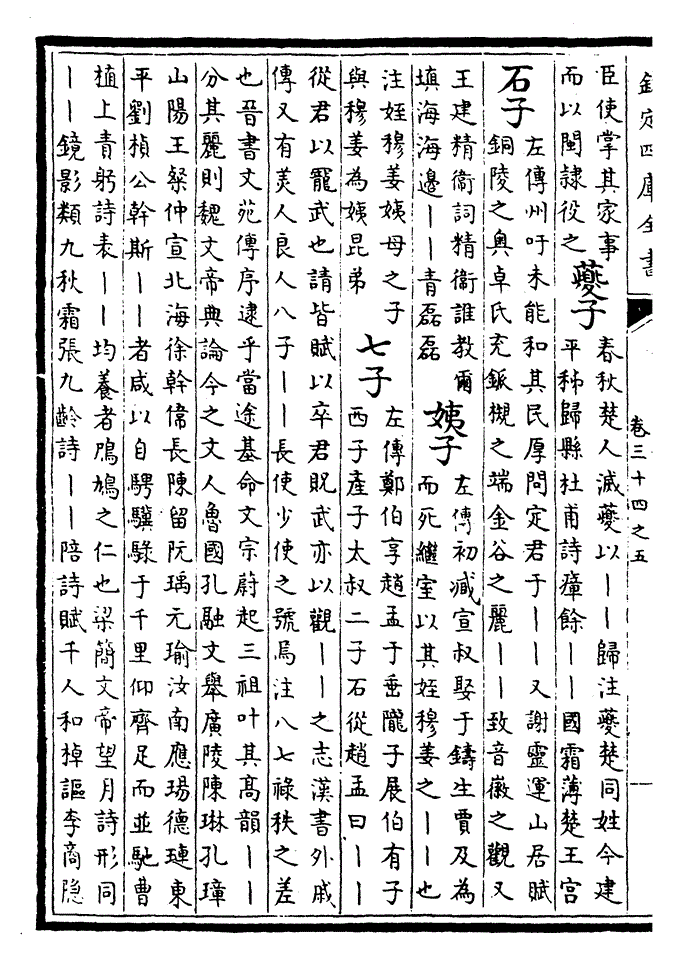 欽定四庫全書
卷三十四之五
臣使掌其家事
而以閽隸役之
夔子
春秋楚人滅夔以——歸注夔楚同姓今建
平秭歸縣杜甫詩瘴餘——國霜薄楚王宮
石子
左傳州吁未能和其民厚問定君于——又謝靈運山居賦
銅陵之奧卓氏充鈲槻之端金谷之麗——致音徽之觀又
王建精衛詞精衛誰教爾
填海海邊——青磊磊
姨子
左傳初臧宣叔娶于鑄生賈及為
而死繼室以其姪穆姜之——也
注姪穆姜姨母之子
與穆姜為姨昆弟
七子
左傳鄭伯享趙孟于垂隴子展伯有子
西子產子太叔二子石從趙孟曰——
從君以寵武也請皆賦以卒君貺武亦以觀——之志漢書外戚
傳又有美人良人八子——長使少使之號焉注八七祿秩之差
也晉書文苑傳序逮乎當途基命文宗蔚起三祖叶其高韻——
分其麗則魏文帝典論今之文人魯國孔融文舉廣陵陳琳孔璋
山陽王粲仲宣北海徐幹偉長陳留阮瑀元瑜汝南應瑒德璉東
平劉楨公幹斯——者咸以自騁驥騄于千里仰齊足而並馳曹
植上青躬詩表——均養者鳲鳩之仁也梁簡文帝望月詩形同
——鏡影類九秋霜張九齡詩——陪詩賦千人和棹謳李商隐